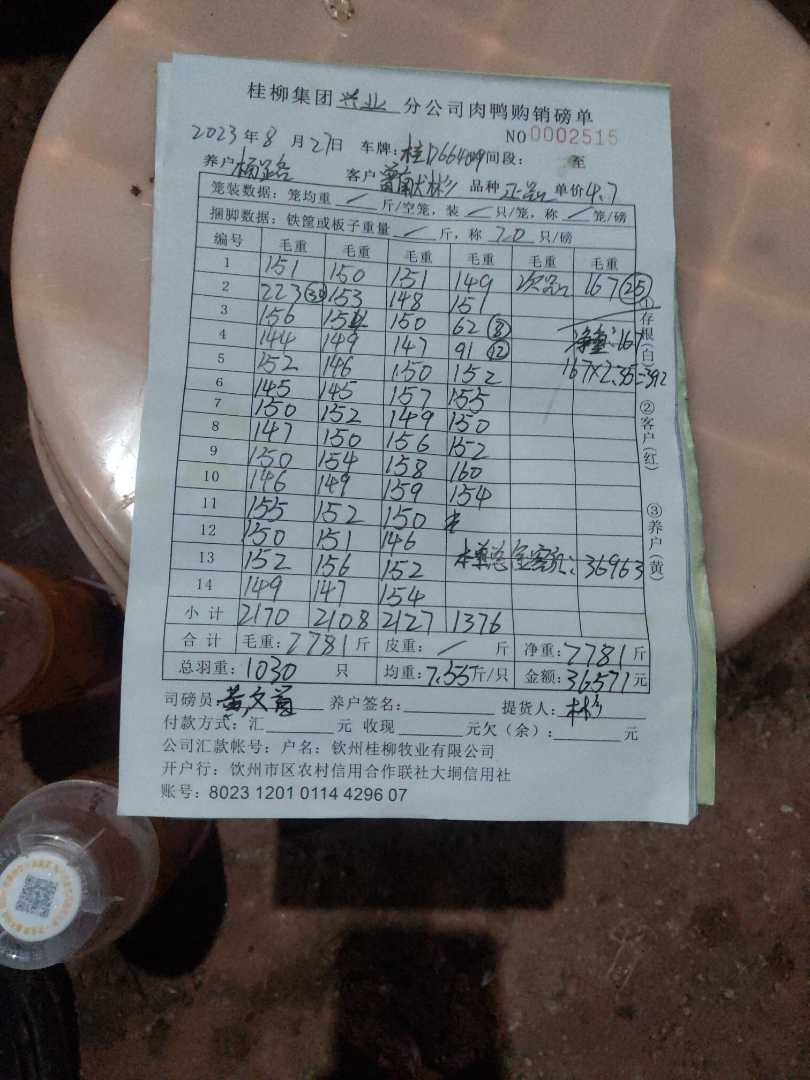 桂柳集团兴业分公司肉鸭购销磅单
NO 0002515
2023年8月27日 车牌:桂D66489 时间段: 至
养户 客户 品种 正品 单价4.7
笼装数据: 笼均重 / 斤/空笼, 装 / 只/笼, 称 / 笼/磅
捆脚数据: 铁筐或板子重量 / 斤, 称 20 只/磅
编号 毛重 毛重 毛重 毛重 毛重 毛重
1 151 150 151 149 次品 167 (25)
2 223 (30) 153 148 151
3 156 150 62 (8) 净重:167
4 144 149 147 91 (12)
5 152 146 150 152 167×2.35=392
6 145 145 157 155
7 150 152 149 150
8 147 150 156 152
9 150 154 158 160
10 146 149 159 154
11 155 152 150
12 150 151 146
13 152 156 152 本单总金额: 36963
14 149 147 154
小计 2170 2108 2127 1376
合计 毛重:7781斤 皮重: / 斤 净重:7781斤
总羽重:1030 只 均重:7.555斤/只 金额:36571元
①存根(白) ②客户(红) ③养户(黄)
司磅员 黄文 养户签名: 提货人: 彬
付款方式: 汇 元 收现 元欠(余): 元
公司汇款帐号: 户名: 钦州桂柳牧业有限公司
开户行: 钦州市区农村信用合作联社大垌信用社
账号: 8023 1201 0114 4296 07